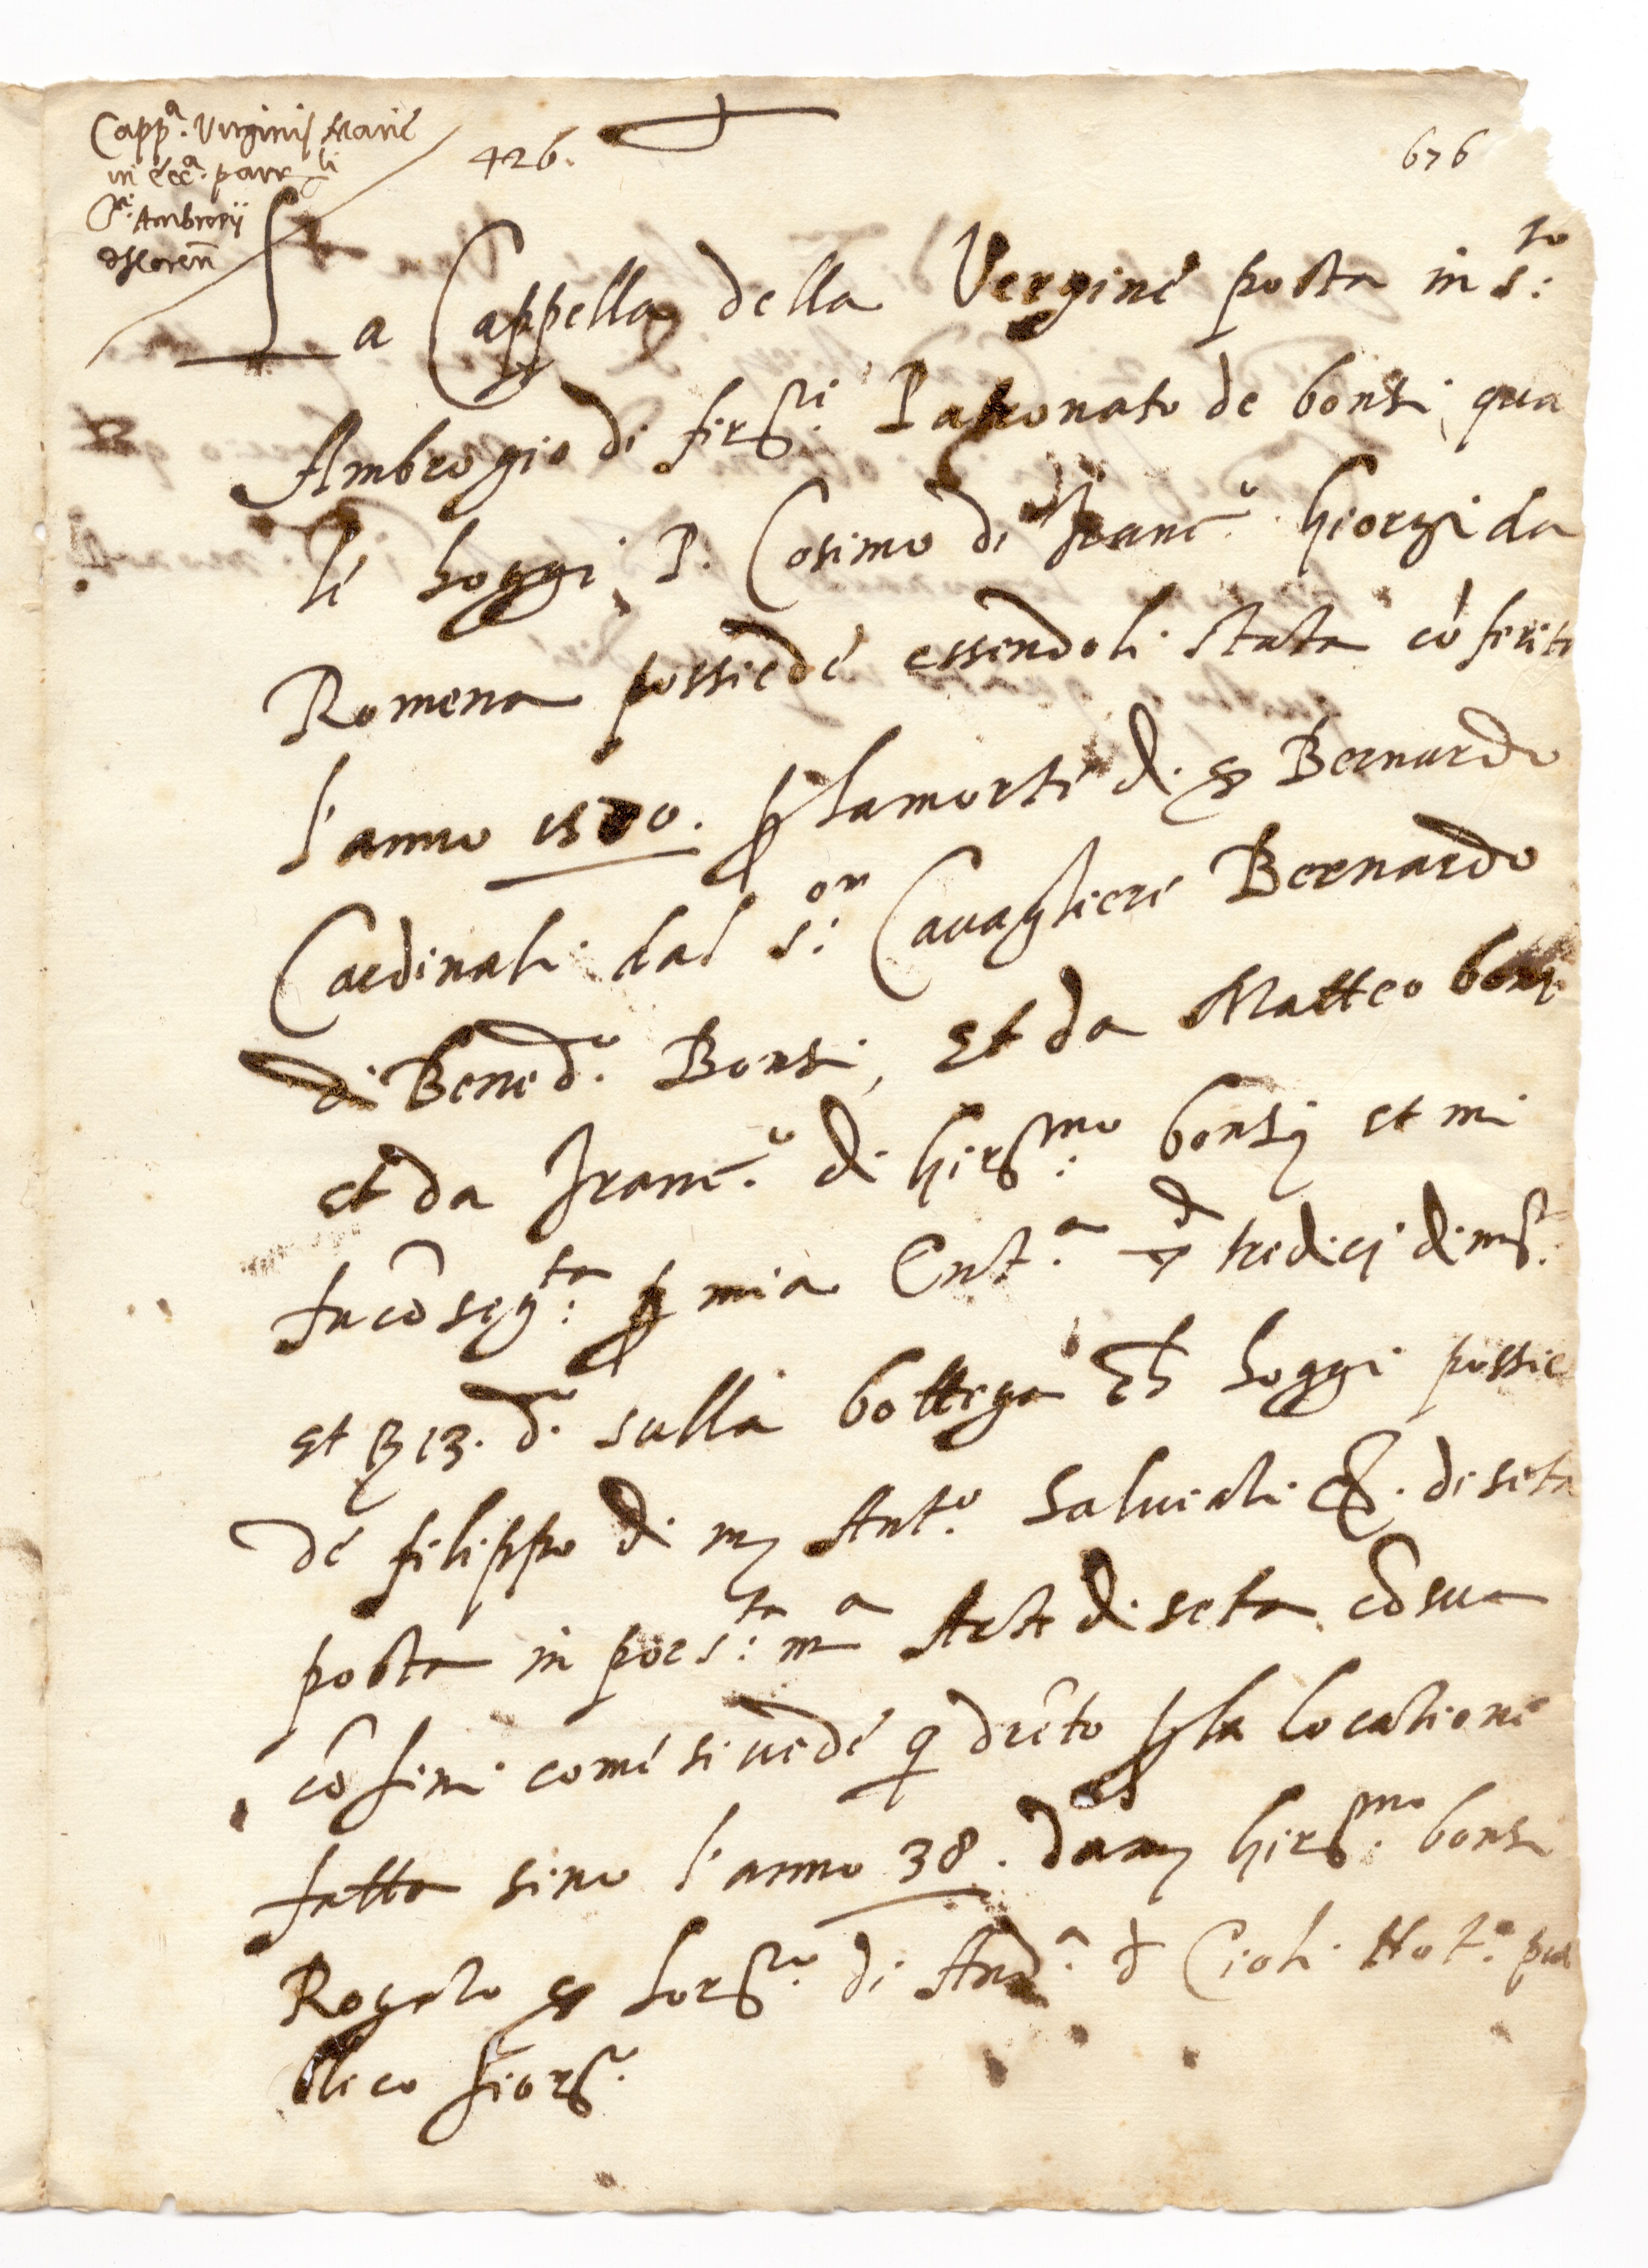 Capp.ª Virginis Marie
in ecc.ª parr.li
S.ti Ambrosij
de Floren.
426.
676
La Cappella della Vergine posta in S.to
Ambrogio di fir.ze Patronato de bonsi, qua
le hoggi P. Cosimo di franc.o Giorgi da
Romena possiede essendoli stata cōferita
l'anno 1580. p la morte di s Bernardo
Cardinali dal s.or Cavagliere Bernardo
di Bened.o Bonsi, et da Matteo bonsi
et da franc.o di hier.mo bonsi et mi
fu cōseg.ta p mia Ent.ª tredici di m.ta
et 13. d.o sulla bottega ch hoggi possie
de filippo di m Ant.o Salviati &. di seta
posta in por s.ta m.a Arte di seta cō sua
cōfini come si vede q drēto p la locatione
fatta sino l'anno 38. da m hier.mo bonsi
Rogato s di And.ª d Cioli Not.o pub
blico fior.no